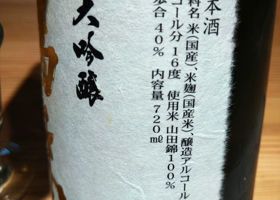 本酒
料名 米(国産)、米麹(国産米)、醸造アルコール
コール分 16度 使用米 山田錦100%
歩合 40% 内容量 720ml
大吟醸